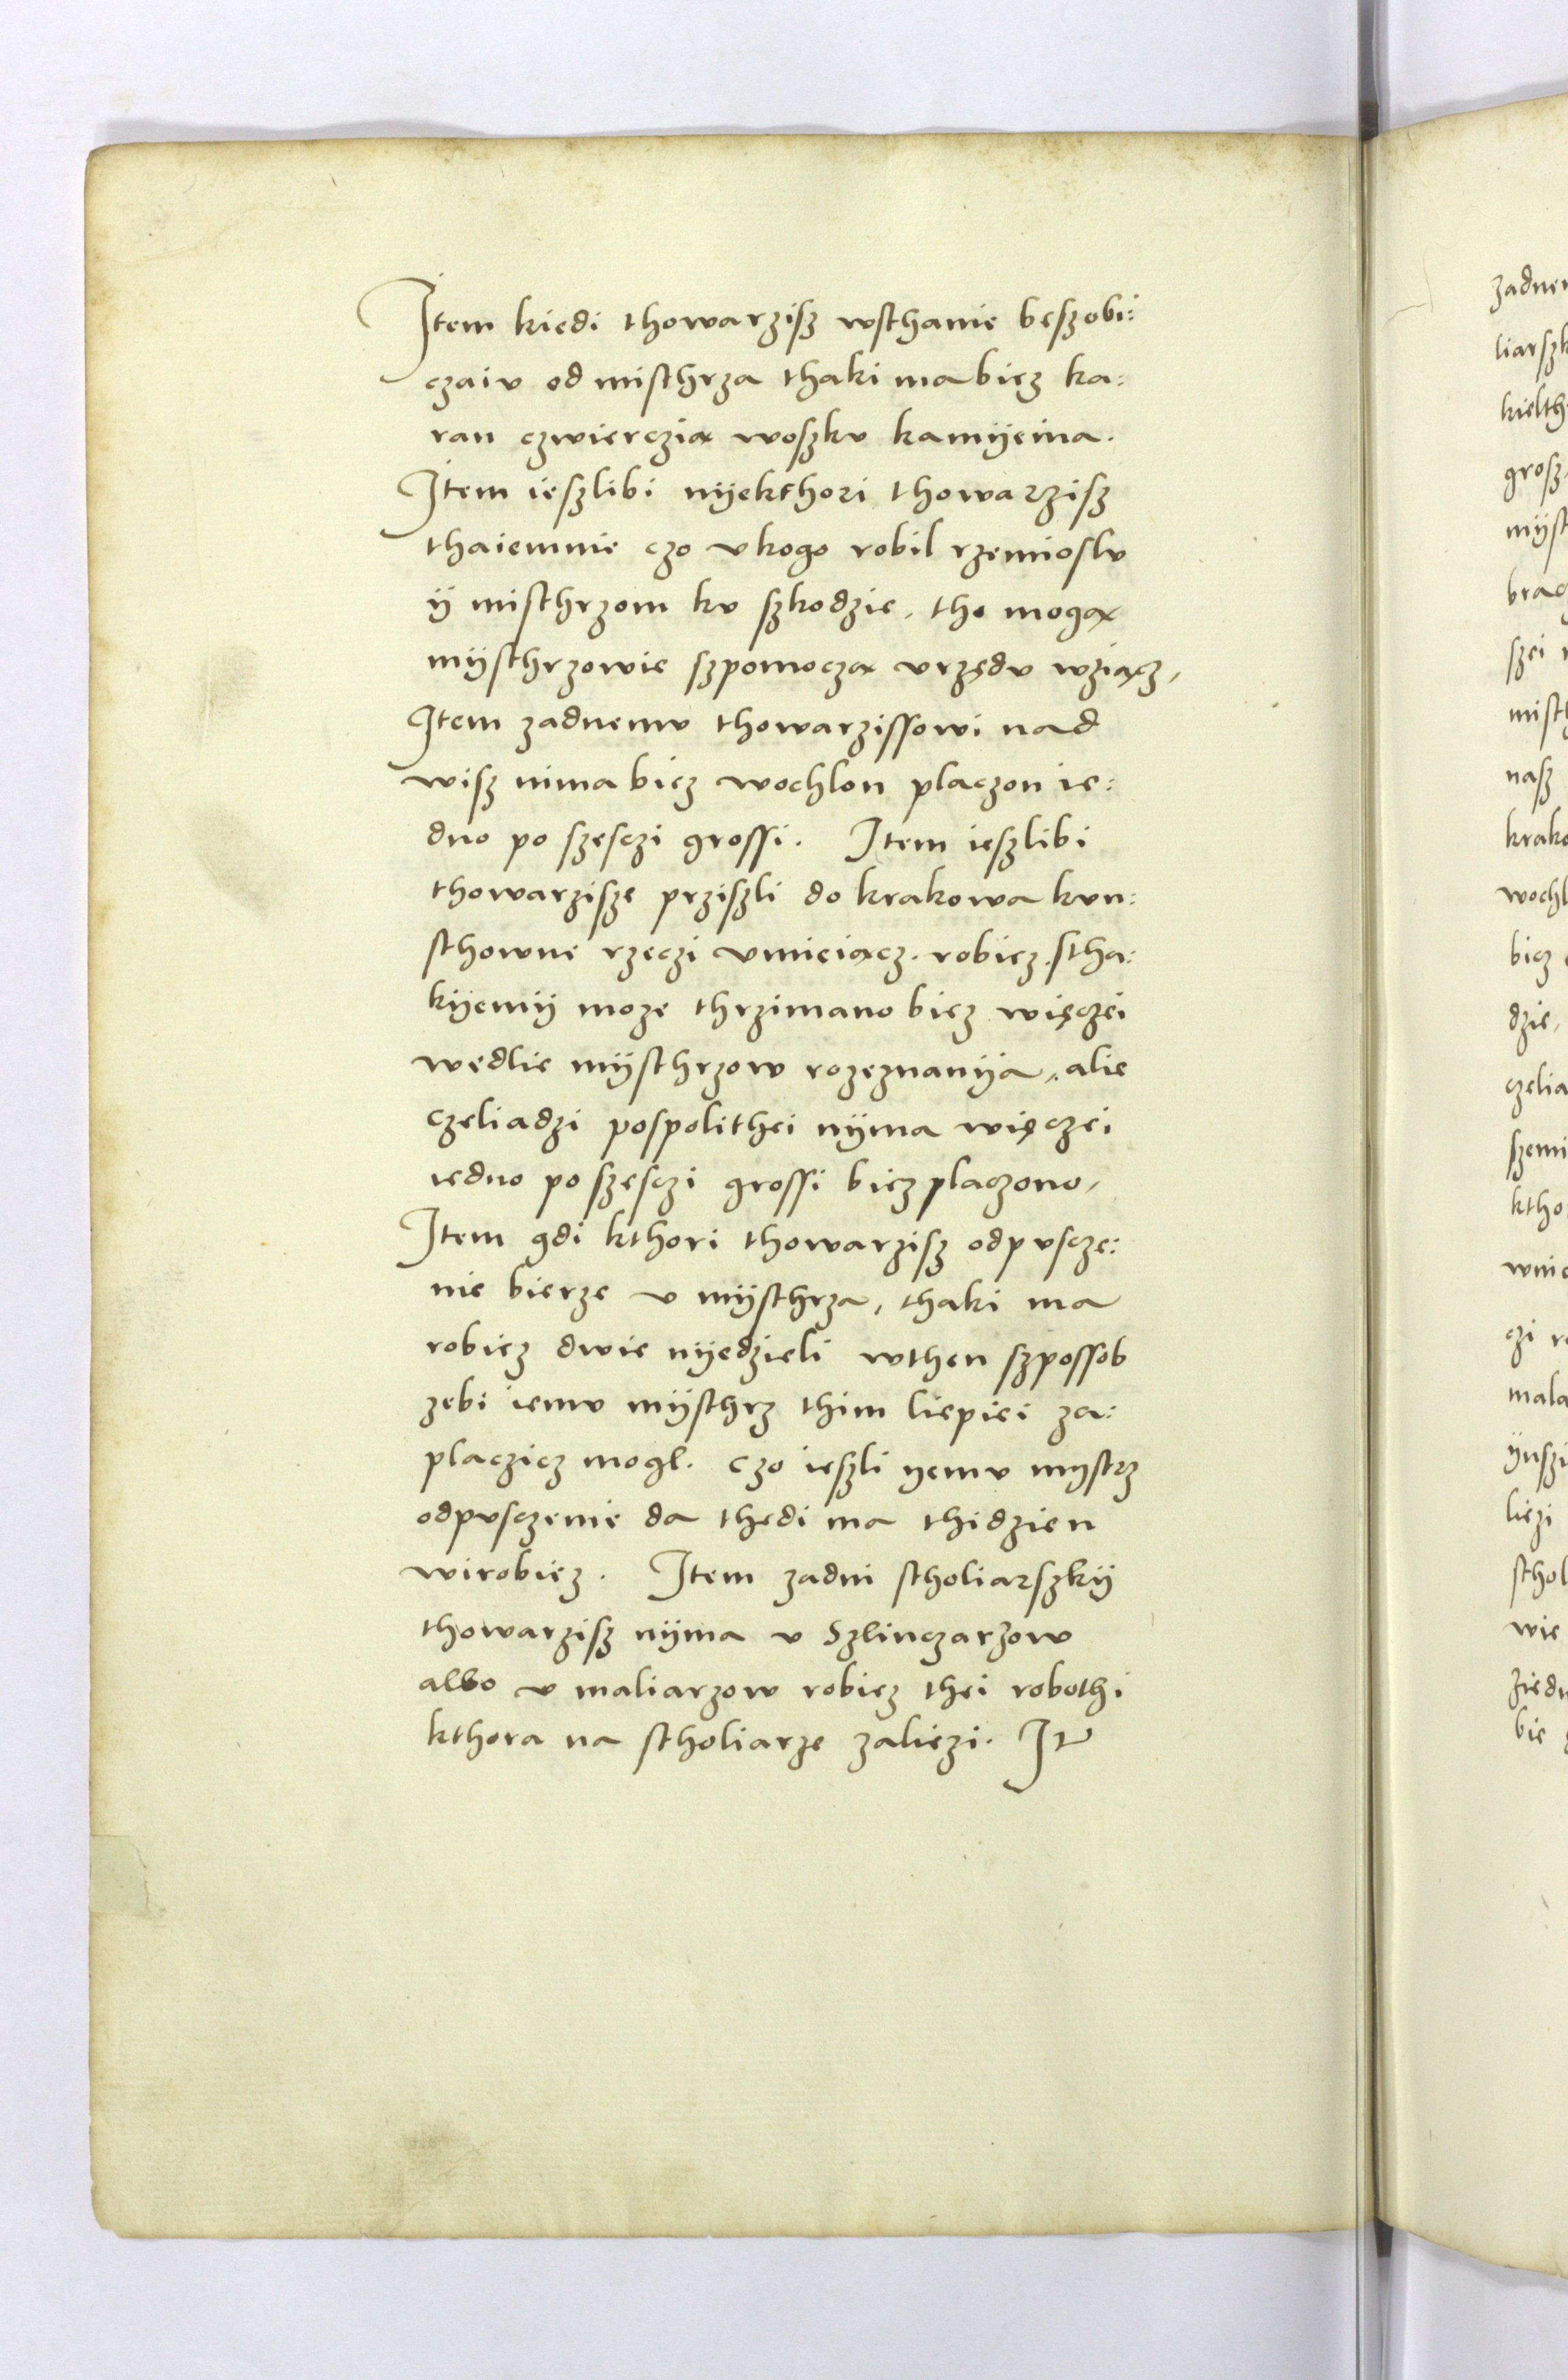 Item kiedi thowarzisz wsthanie beszobi:
czaiv od misthrza thaki ma bicz ka:
ran czwierczią woszkv kamÿeina.
Item ieszlibi nÿekthori thowarzisz
thaiemnie czo v kogo robil rzemioslv
ÿ misthrzom kv szkodzie, tho mogą
mÿsthrzowie szpomoczą vrzędv wziącz,
Item zadnemv thowarzissowi nad
wisz nima bicz wochlon placzon ie:
dno po szesczi grossi. Item ieszlibi
thowarzisze prziszli do krakowa kvn:
sthowne rzeczi vmieiącz. robicz. stha:
kÿemÿ moze thrzimano bicz więczei
wedlie mÿsthrzow rozeznanÿa, alie
czeliadzi pospolithei nÿma więczei
iedno po szesczi grossi bicz placzono,
Item gdi kthori thowarzisz odpvscze:
nie bierze v mÿsthrza, thaki ma
robicz dwie nÿedzieli wthen szpossob
zebi iemv mÿsthrz thim liepiei za:
placzicz mogl. czo ieszli yemv mystrz
odpvsczenie da thedi ma thidzien
wirobicz. Item zadni stholiarszkÿ
thowarzisz nÿma v Szlinczarzow
albo v maliarzow robicz thei robothi
kthora na stholiarze zaliezi. It
zadnem
liarszk
kielth
grosz
mÿst
brac
szei
misth
nasz
krako
wochl
bicz
dzie,
czelia
szemi
ktho
wnie
czi ro
mala
ÿnszi
liezi
sthol
wie
ziedn
bie